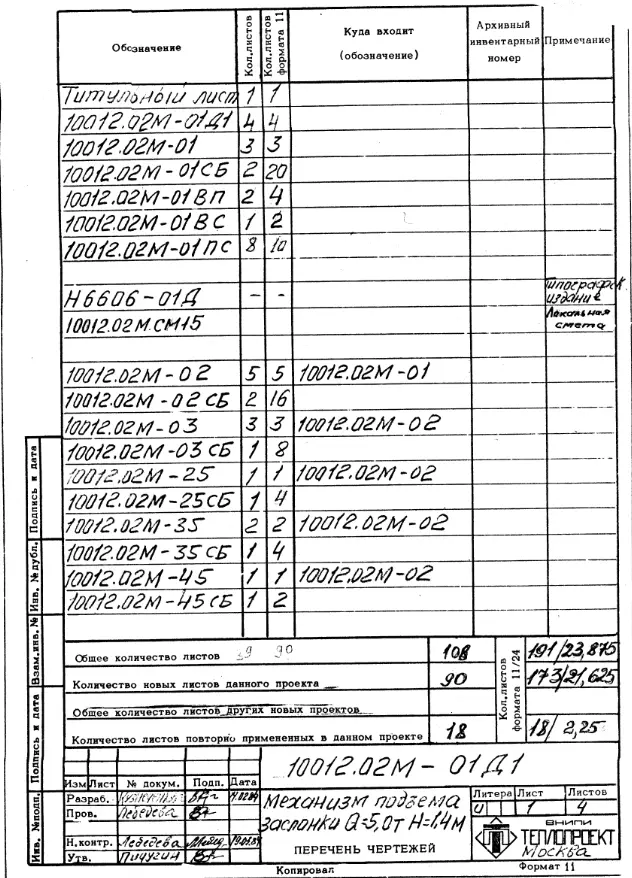 Обозначение Кол.листов Кол.листов формата 11 Куда входит (обозначение) Архивный инвентарный номер Примечание
Титульный лист 1 1
10012.02М-01Д1 4 4
10012.02М-01 3 3
10012.02М-01СБ 2 20
10012.02М-01ВП 2 4
10012.02М-01ВС 1 2
10012.02М-01ПС 8 10
Н6606-01Д - - Типографск. издание
10012.02М.СМ15 Локальная смета
10012.02М-02 5 5 10012.02М-01
10012.02М-02СБ 2 16
10012.02М-03 3 3 10012.02М-02
10012.02М-03СБ 1 8
10012.02М-25 1 1 10012.02М-02
10012.02М-25СБ 1 4
10012.02М-35 2 2 10012.02М-02
10012.02М-35СБ 1 4
10012.02М-45 1 1 10012.02М-02
10012.02М-45СБ 1 2
Общее количество листов 90 108 Кол.листов формата 11/24 191/23,875
Количество новых листов данного проекта 90 173/21,625
Общее количество листов других новых проектов
Количество листов повторно примененных в данном проекте 18 18/2,25
Подпись и дата
Инв. № дубл.
Взам.инв. №
Подпись и дата
Инв. №подл.
10012.02М-01Д1
Изм Лист № докум. Подп. Дата
Разраб.
Пров. Лебедева
Н.контр. Лебедева
Утв. Пичугин
Механизм подъема
заслонки Q=5,0т Н=1,4м
ПЕРЕЧЕНЬ ЧЕРТЕЖЕЙ
Литера Лист Листов
И 1 4
ВНИПИ
ТЕПЛОПРОЕКТ
Москва
Копировал Формат 11